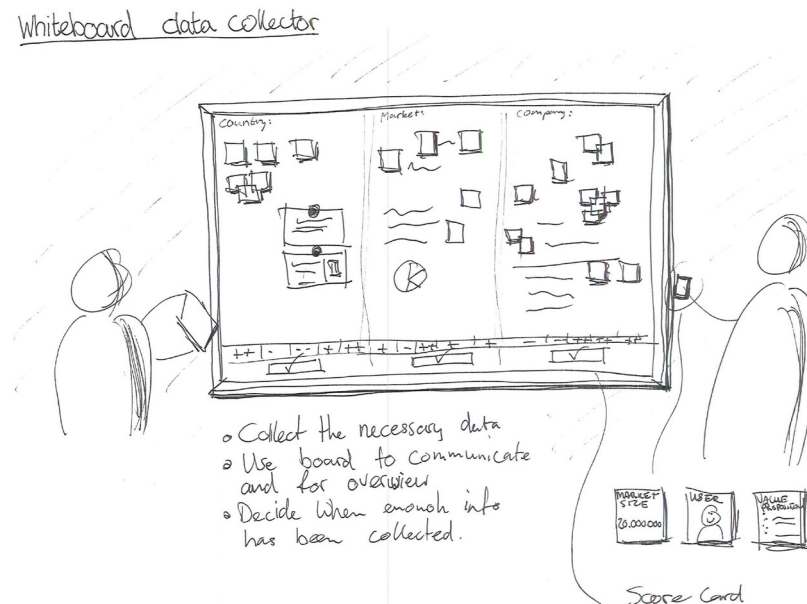 Whiteboard data collector
Country:
Market:
Company:
++ - -- + ++ + - ++ + + - - ++ ++ ++
• Collect the necessary data
• Use board to communicate
and for overview
• Decide when enough info
has been collected.
MARKET
SIZE
20.000.000
USER
VALUE
PROPOSITION
Score Card